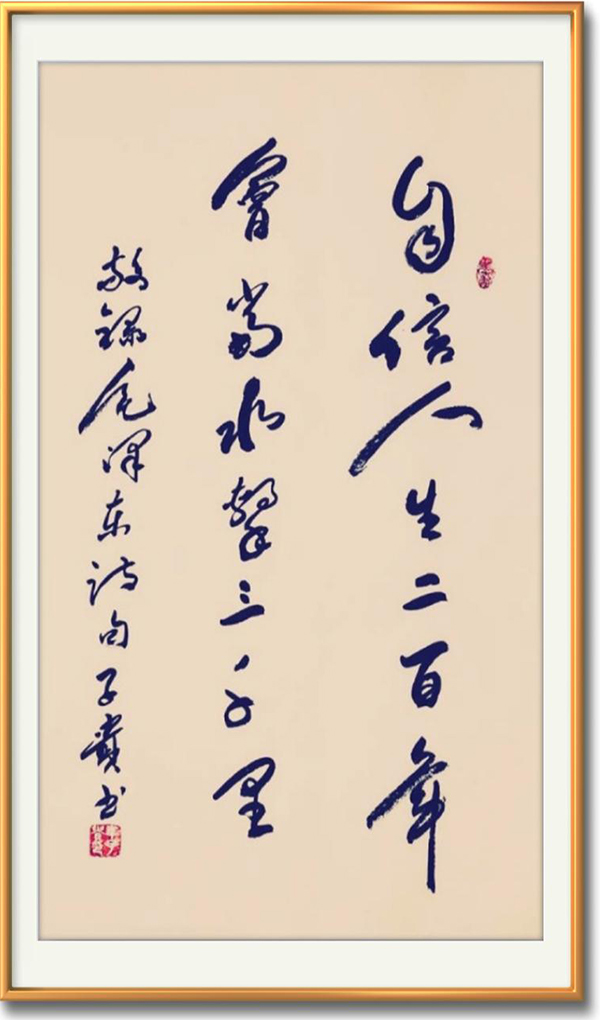 自信人生二百年
會當水擊三千里
敬録毛澤东詩句子貴书